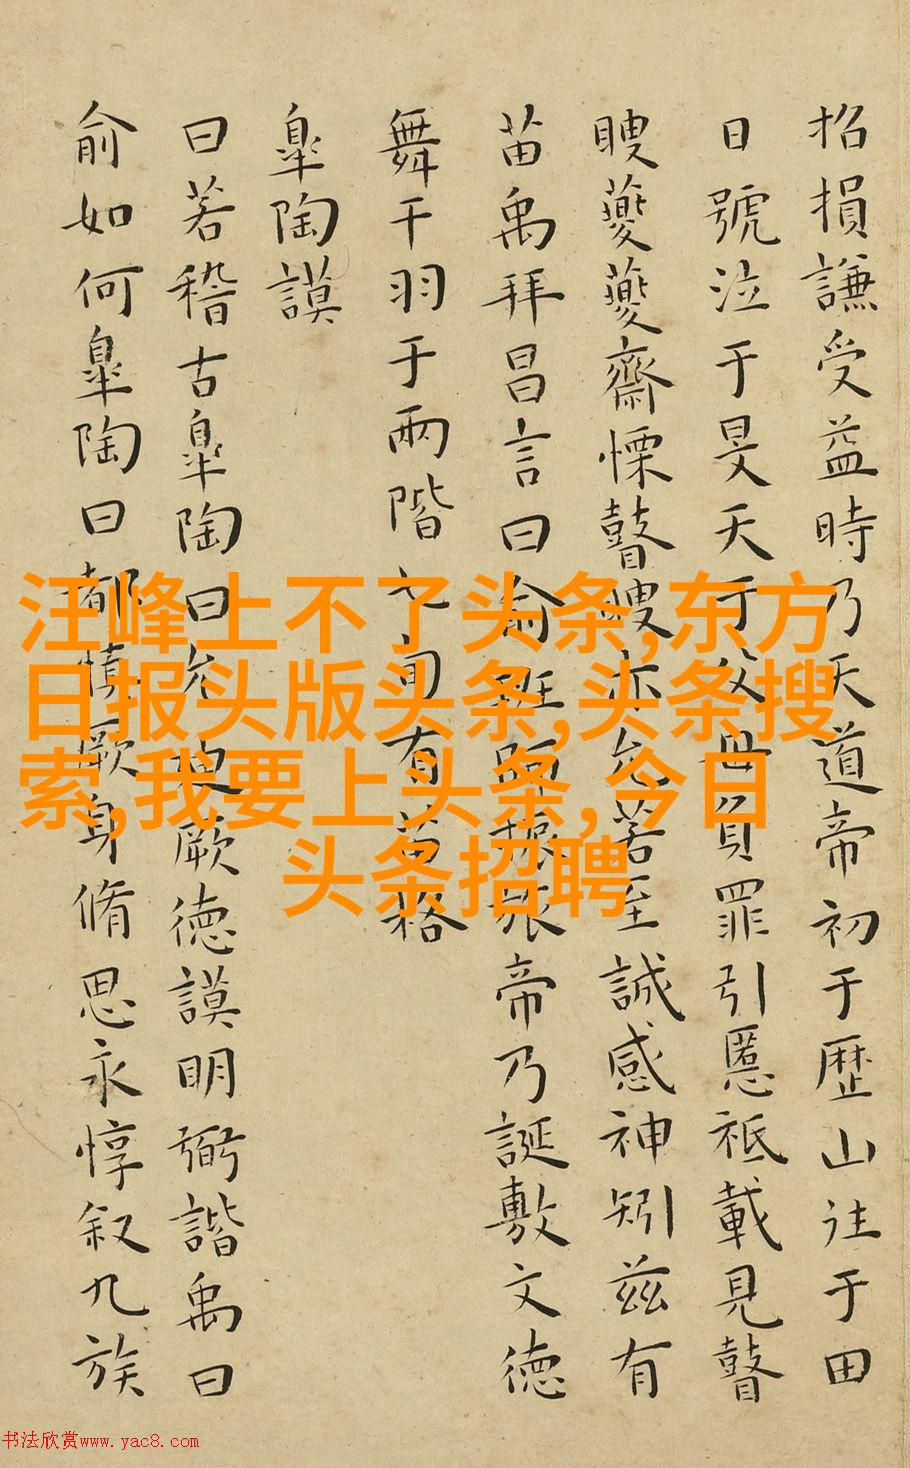 招損謙受益時乃天道帝初于歴山往于田
日號泣于旻天于父母負罪引慝祗載見瞽
瞍夔夔齋慄瞽瞍亦允若至誠感神矧茲有
苗禹拜昌言曰俞班師振旅帝乃誕敷文德
舞干羽于兩階七旬有苗格
臯陶謨
曰若稽古臯陶曰允迪厥德謨明弼諧禹曰
俞如何臯陶曰都慎厥身脩思永惇叙九族
汪峰上不了头条,东方
日报头版头条,头条搜
索,我要上头条,今日
头条招聘
书法欣赏www.yac8.com